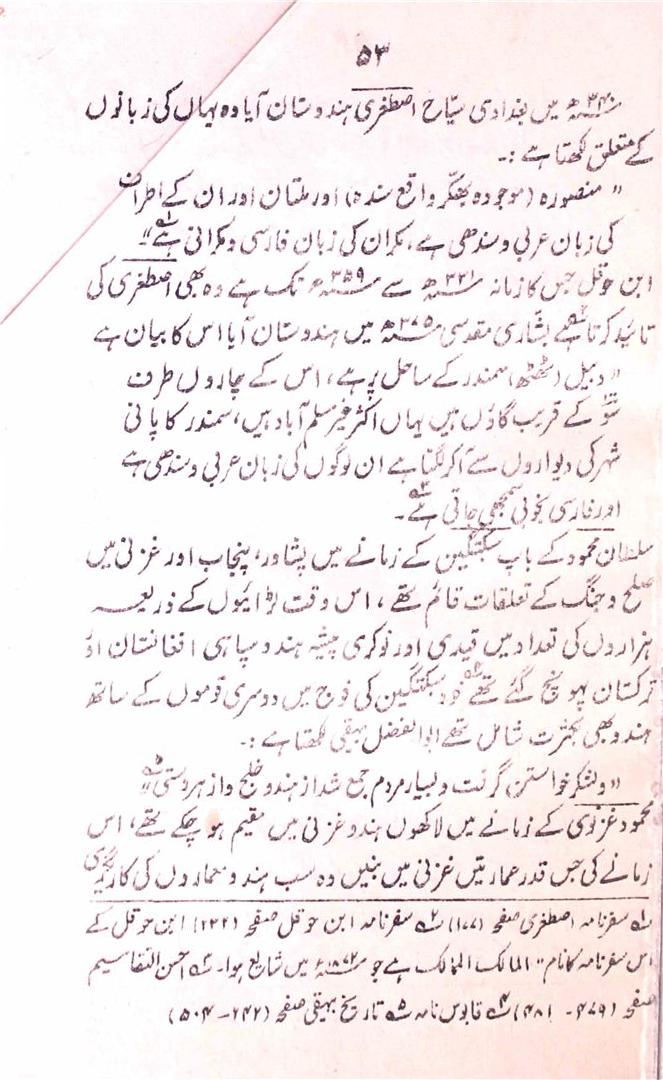 ۵۳
۳۴۰ھ میں بغدادی سیّاح اصطخری ہندوستان آیا وہ یہاں کی زبانوں
کے متعلق لکھتا ہے :۔
" منصورہ (موجودہ بھکّر واقع سندہ) اور ملتان اور ان کے اطراف
کی زبان عربی و سندھی ہے، مکران کی زبان فارسی و مکرانی ہے۱؎"
ابن حوقل جس کا زمانہ ۳۳۱ھ سے ۳۵۹ھ تک ہے وہ بھی اصطخری کی
تائید کرتا ہے۲؎ بشّاری مقدسی ۳۷۵ھ میں ہندوستان آیا اس کا بیان ہے
" دیبل (ٹھٹھ) سمندر کے ساحل پر ہے، اس کے چاروں طرف
سَو کے قریب گاؤں ہیں یہاں اکثر غیر مسلم آباد ہیں، سمندر کا پانی
شہر کی دیواروں سے آکر لگتا ہے ان لوگوں کی زبان عربی و سندھی ہے
اور فارسی بخوبی سمجھی جاتی ہے۳؎۔
سلطان محمود کے باپ سبکتگین کے زمانے میں پشاور، پنجاب اور غزنی میں
صلح و جنگ کے تعلقات قائم تھے، اس وقت لڑائیوں کے ذریعہ
ہزاروں کی تعداد میں قیدی اور نوکری پیشہ ہندو سپاہی افغانستان اور
ترکستان پہونچ گئے تھے۴؎ خود سبکتگین کی فوج میں دوسری قوموں کے ساتھ
ہندو بھی بکثرت شامل تھے ابوالفضل بیہقی لکھتا ہے :۔
" ولشکر خواستن گرفت و بسیار مردم جمع شد از ہندو خلج و از ہر دستی۵؎"
محمود غزنوی کے زمانے میں لاکھوں ہندو غزنی میں مقیم ہو چکے تھے، اس
زمانے کی جس قدر عمارتیں غزنی میں بنیں وہ سب ہندو معماروں کی کاریگری
۱؎ سفر نامہ اصطخری صفحہ (۱۷۷) ۲؎ سفر نامہ ابن حوقل صفحہ (۲۳۲) ابن حوقل کے
اس سفر نامہ کا نام "المالک الممالک ہے جو ۱۸۷۲ء میں شایع ہوا۔ ۳؎ احسن التقاسیم
صفحہ (۴۷۹ - ۴۸۱) ۴؎ قابوس نامہ ۵؎ تاریخ بیہقی صفحہ (۲۴۲ - ۵۰۴)